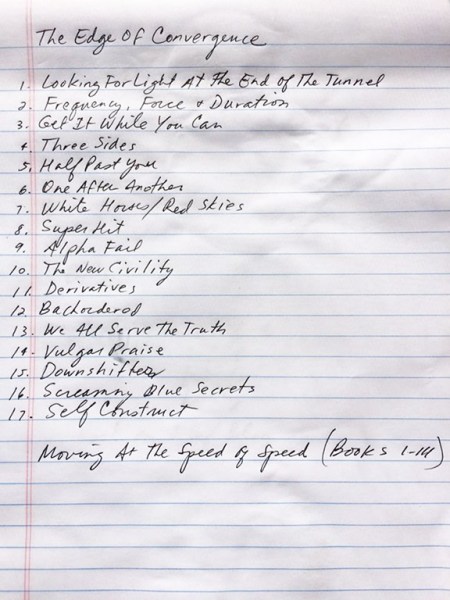 The Edge Of Convergence
1. Looking For Light At The End Of The Tunnel
2. Frequency, Force & Duration
3. Get It While You Can
4. Three Sides
5. Half Past You
6. One After Another
7. White Horses/Red Skies
8. Super Hit
9. Alpha Fail
10. The New Civility
11. Derivatives
12. Backordered
13. We All Serve The Truth
14. Vulgar Praise
15. Downshifters
16. Screaming Blue Secrets
17. Self Construct
Moving At The Speed of Speed (Books 1-14)